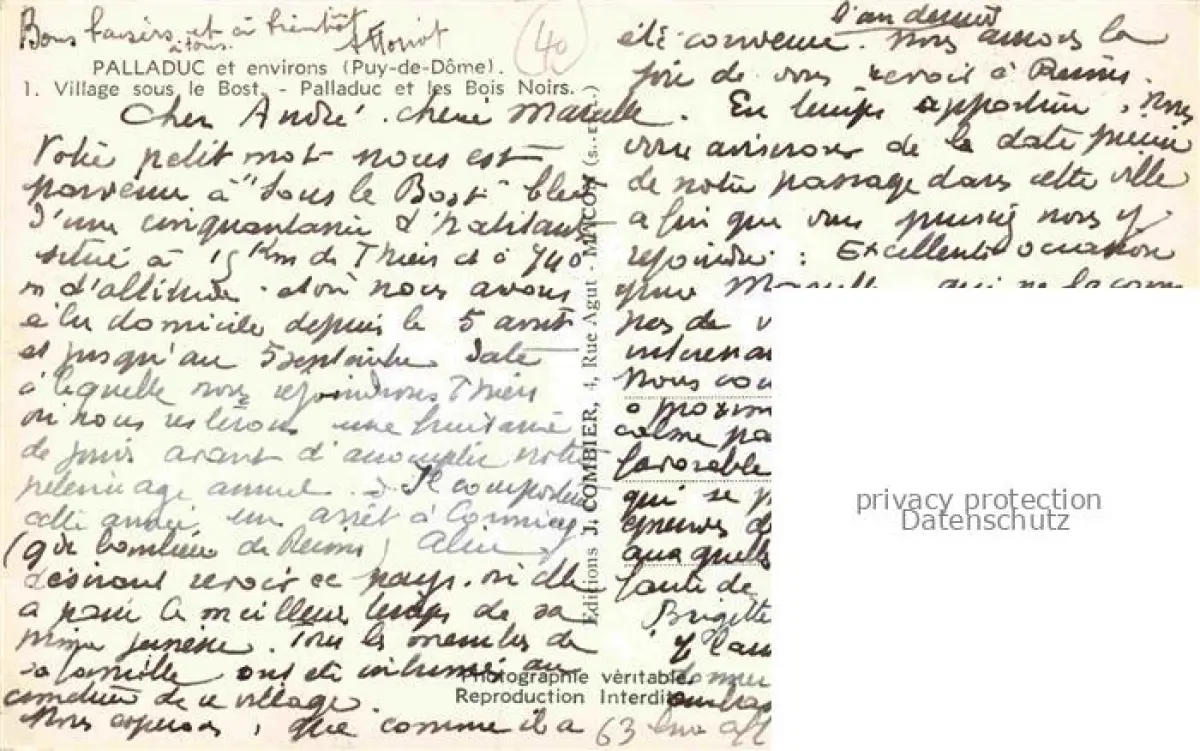 Bons baisers et à bientôt
à tous.
PALLADUC et environs (Puy-de-Dôme).
1. Village sous le Bost. - Palladuc et les Bois Noirs.
40
Cher André, chère Marcelle.
Votre petit mot nous est
parvenu à "Sous le Bost"
d'une cinquantaine d'habitants
situé à 15 Km de Thiers et à 740
m d'altitude. et où nous avons
élu domicile depuis le 5 août
et jusqu'au 5 septembre date
à laquelle nous rejoindrons Thiers
où nous resterons une huitaine
de jours avant d'accomplir notre
pélerinage annuel. Il comportera
cette année un arrêt à Cormicy
(banlieue de Reims)
désirant revoir ce pays où elle
a passé le meilleur temps de sa
prime jeunesse. Tous les membres de
sa famille ont été inhumés au
cimetière de ce village.
Nous espérons, que comme il a
63
Editions J. COMBIER, 4, Rue Agut - MACON (S.-et-L.)
Photographie véritable.
Reproduction Interdite
l'an dernier
été convenu. Nous aurons la
joie de vous revoir à Reims.
En temps opportun, nous
vous aviserons de la date
de notre passage dans cette ville
afin que vous puissiez nous y
rejoindre : Excellente occasion
pour Marcelle qui ne la
pas de
Nous
calme
favorable
qui se
épreuves
auxquelles
faute de
Brigitte
privacy protection
Datenschutz